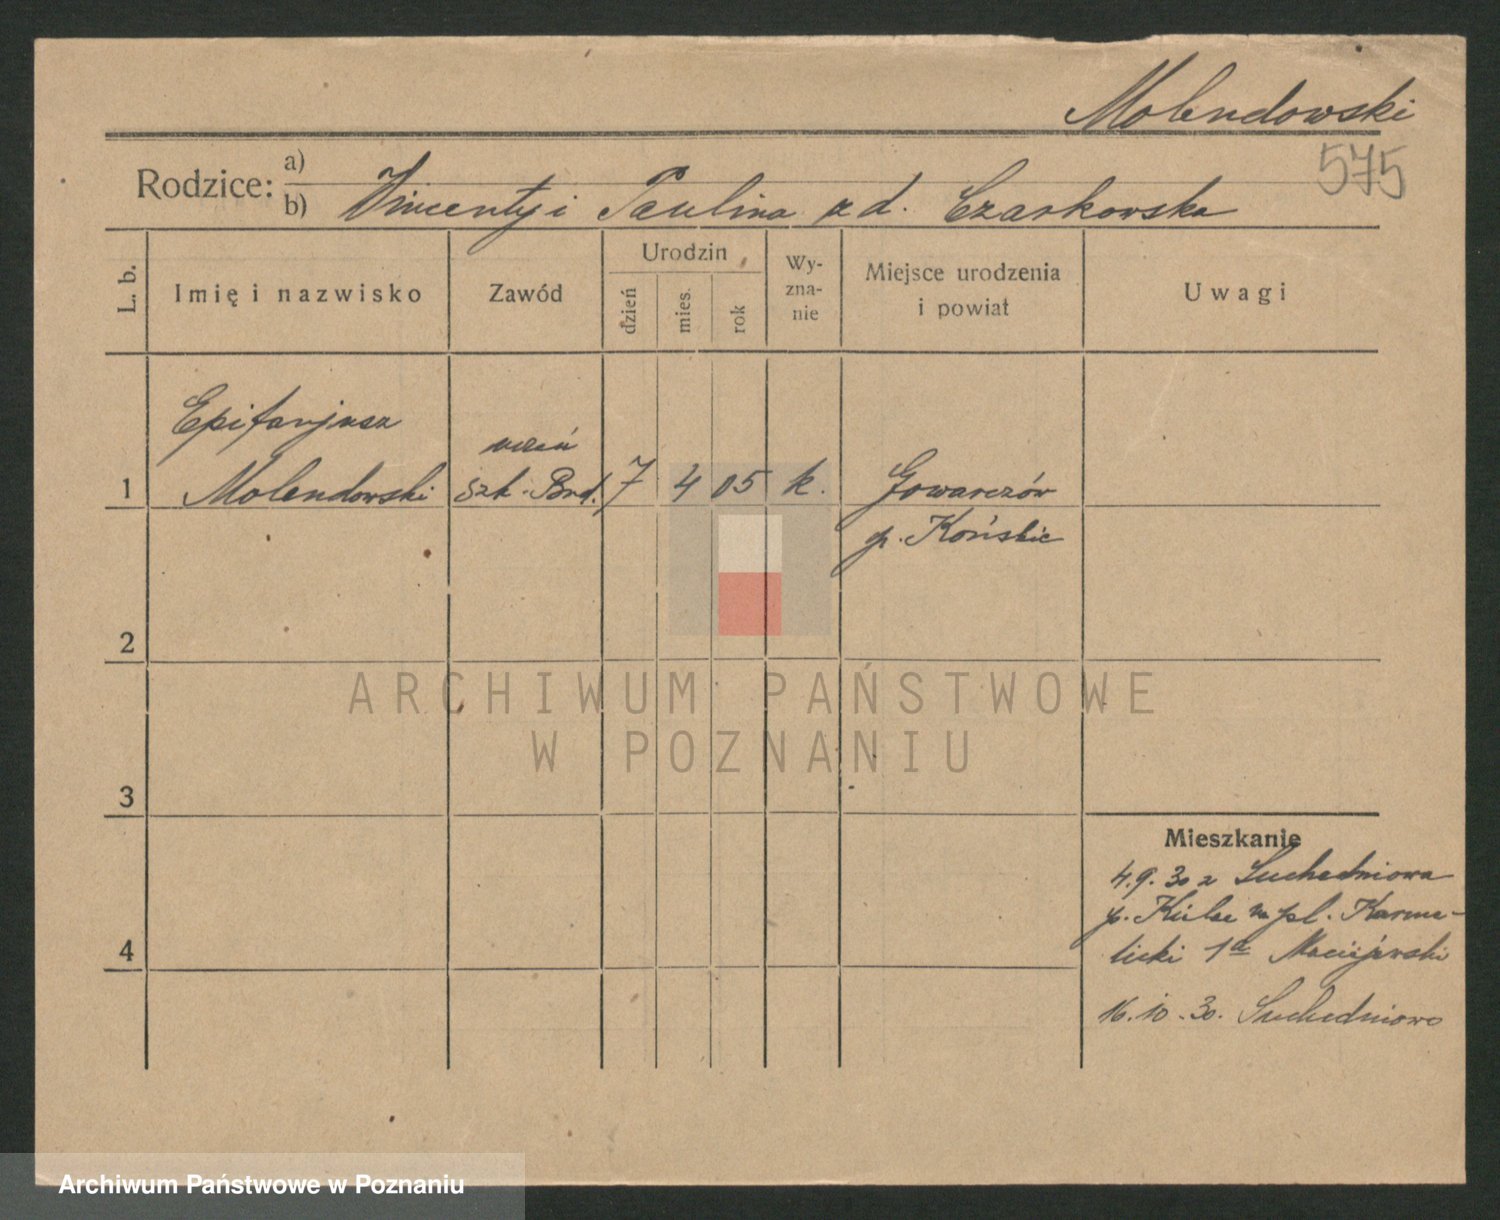 Molendowski
575
Rodzice: a)
b) Vincenty i Paulina z d. Czarkowska
L. b.
Imię i nazwisko
Zawód
Urodzin
dzień
mies.
rok
Wy-
zna-
nie
Miejsce urodzenia
i powiat
Uwagi
Epifanjusz
1 Molendowski
uczeń
szk. Bud.
7 4 05 k.
Gowarczów
p. Końskie
2
3
4
ARCHIWUM PAŃSTWOWE
W POZNANIU
Mieszkanie
4.9.30 z Suchedniowa
p. Kielce na pl. Karme-
licki 1a Maciejewski
16.10.30. Suchedniowo
Archiwum Państwowe w Poznaniu